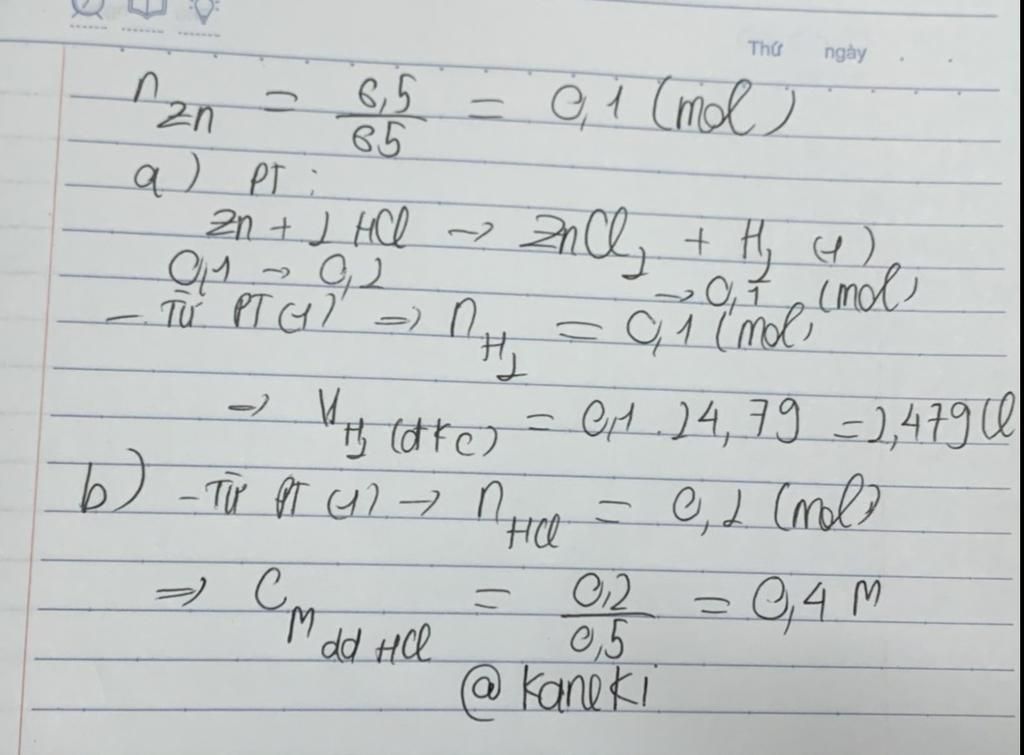 Thứ ngày . .
n Zn = 6,5/65 = 0,1 (mol)
a) PT:
Zn + 2HCl → ZnCl₂ + H₂ (1)
0,1 → 0,2 → 0,1 (mol)
- Từ PT (1) => n H₂ = 0,1 (mol)
=> V H₂ (đktc) = 0,1 . 24,79 = 2,479 (l
b) - Từ PT (1) → n HCl = 0,2 (mol)
=> C M dd HCl = 0,2/0,5 = 0,4 M
@kaneki